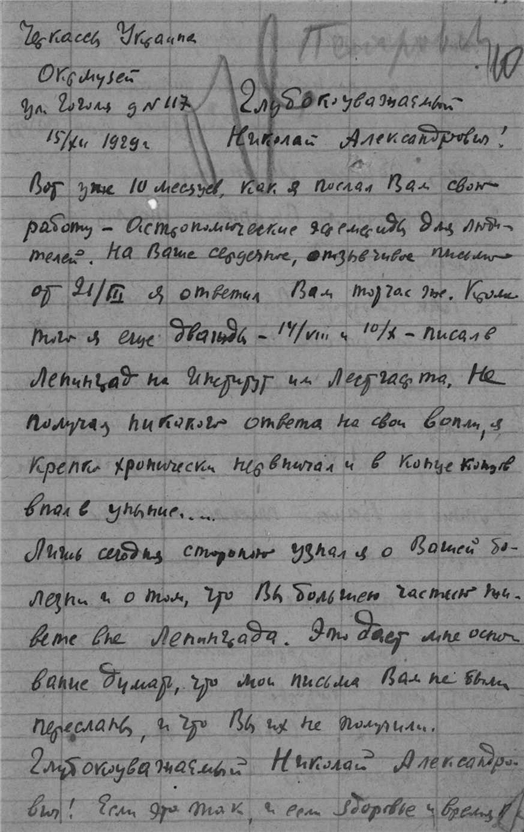 Черкассы Украина
Окрмузей
ул Гоголя д № 117 Глубокоуважаемый
15/XII 1929г Николай Александрович!
Вот уже 10 месяцев, как я послал Вам свою
работу – Астрономические эфемериды для люби-
телей. На Ваше сердечное, отзывчивое письмо
от 21/III я ответил Вам тотчас же. Кроме
того я еще дважды – 14/VIII и 10/X – писал в
Ленинград на Институт им Лесгафта. Не
получая никакого ответа на свои вопли, я
крепко хронически нервничал и в конце концов
впал в уныние....
Лишь сегодня стороною узнал я о Вашей бо-
лезни и о том, что Вы большею частью жи-
вете вне Ленинграда. Это дает мне осно-
вание думать, что мои письма Вам не были
пересланы, и что Вы их не получили.
Глубокоуважаемый Николай Александро-
вич! Если это так, и если здоровье и время